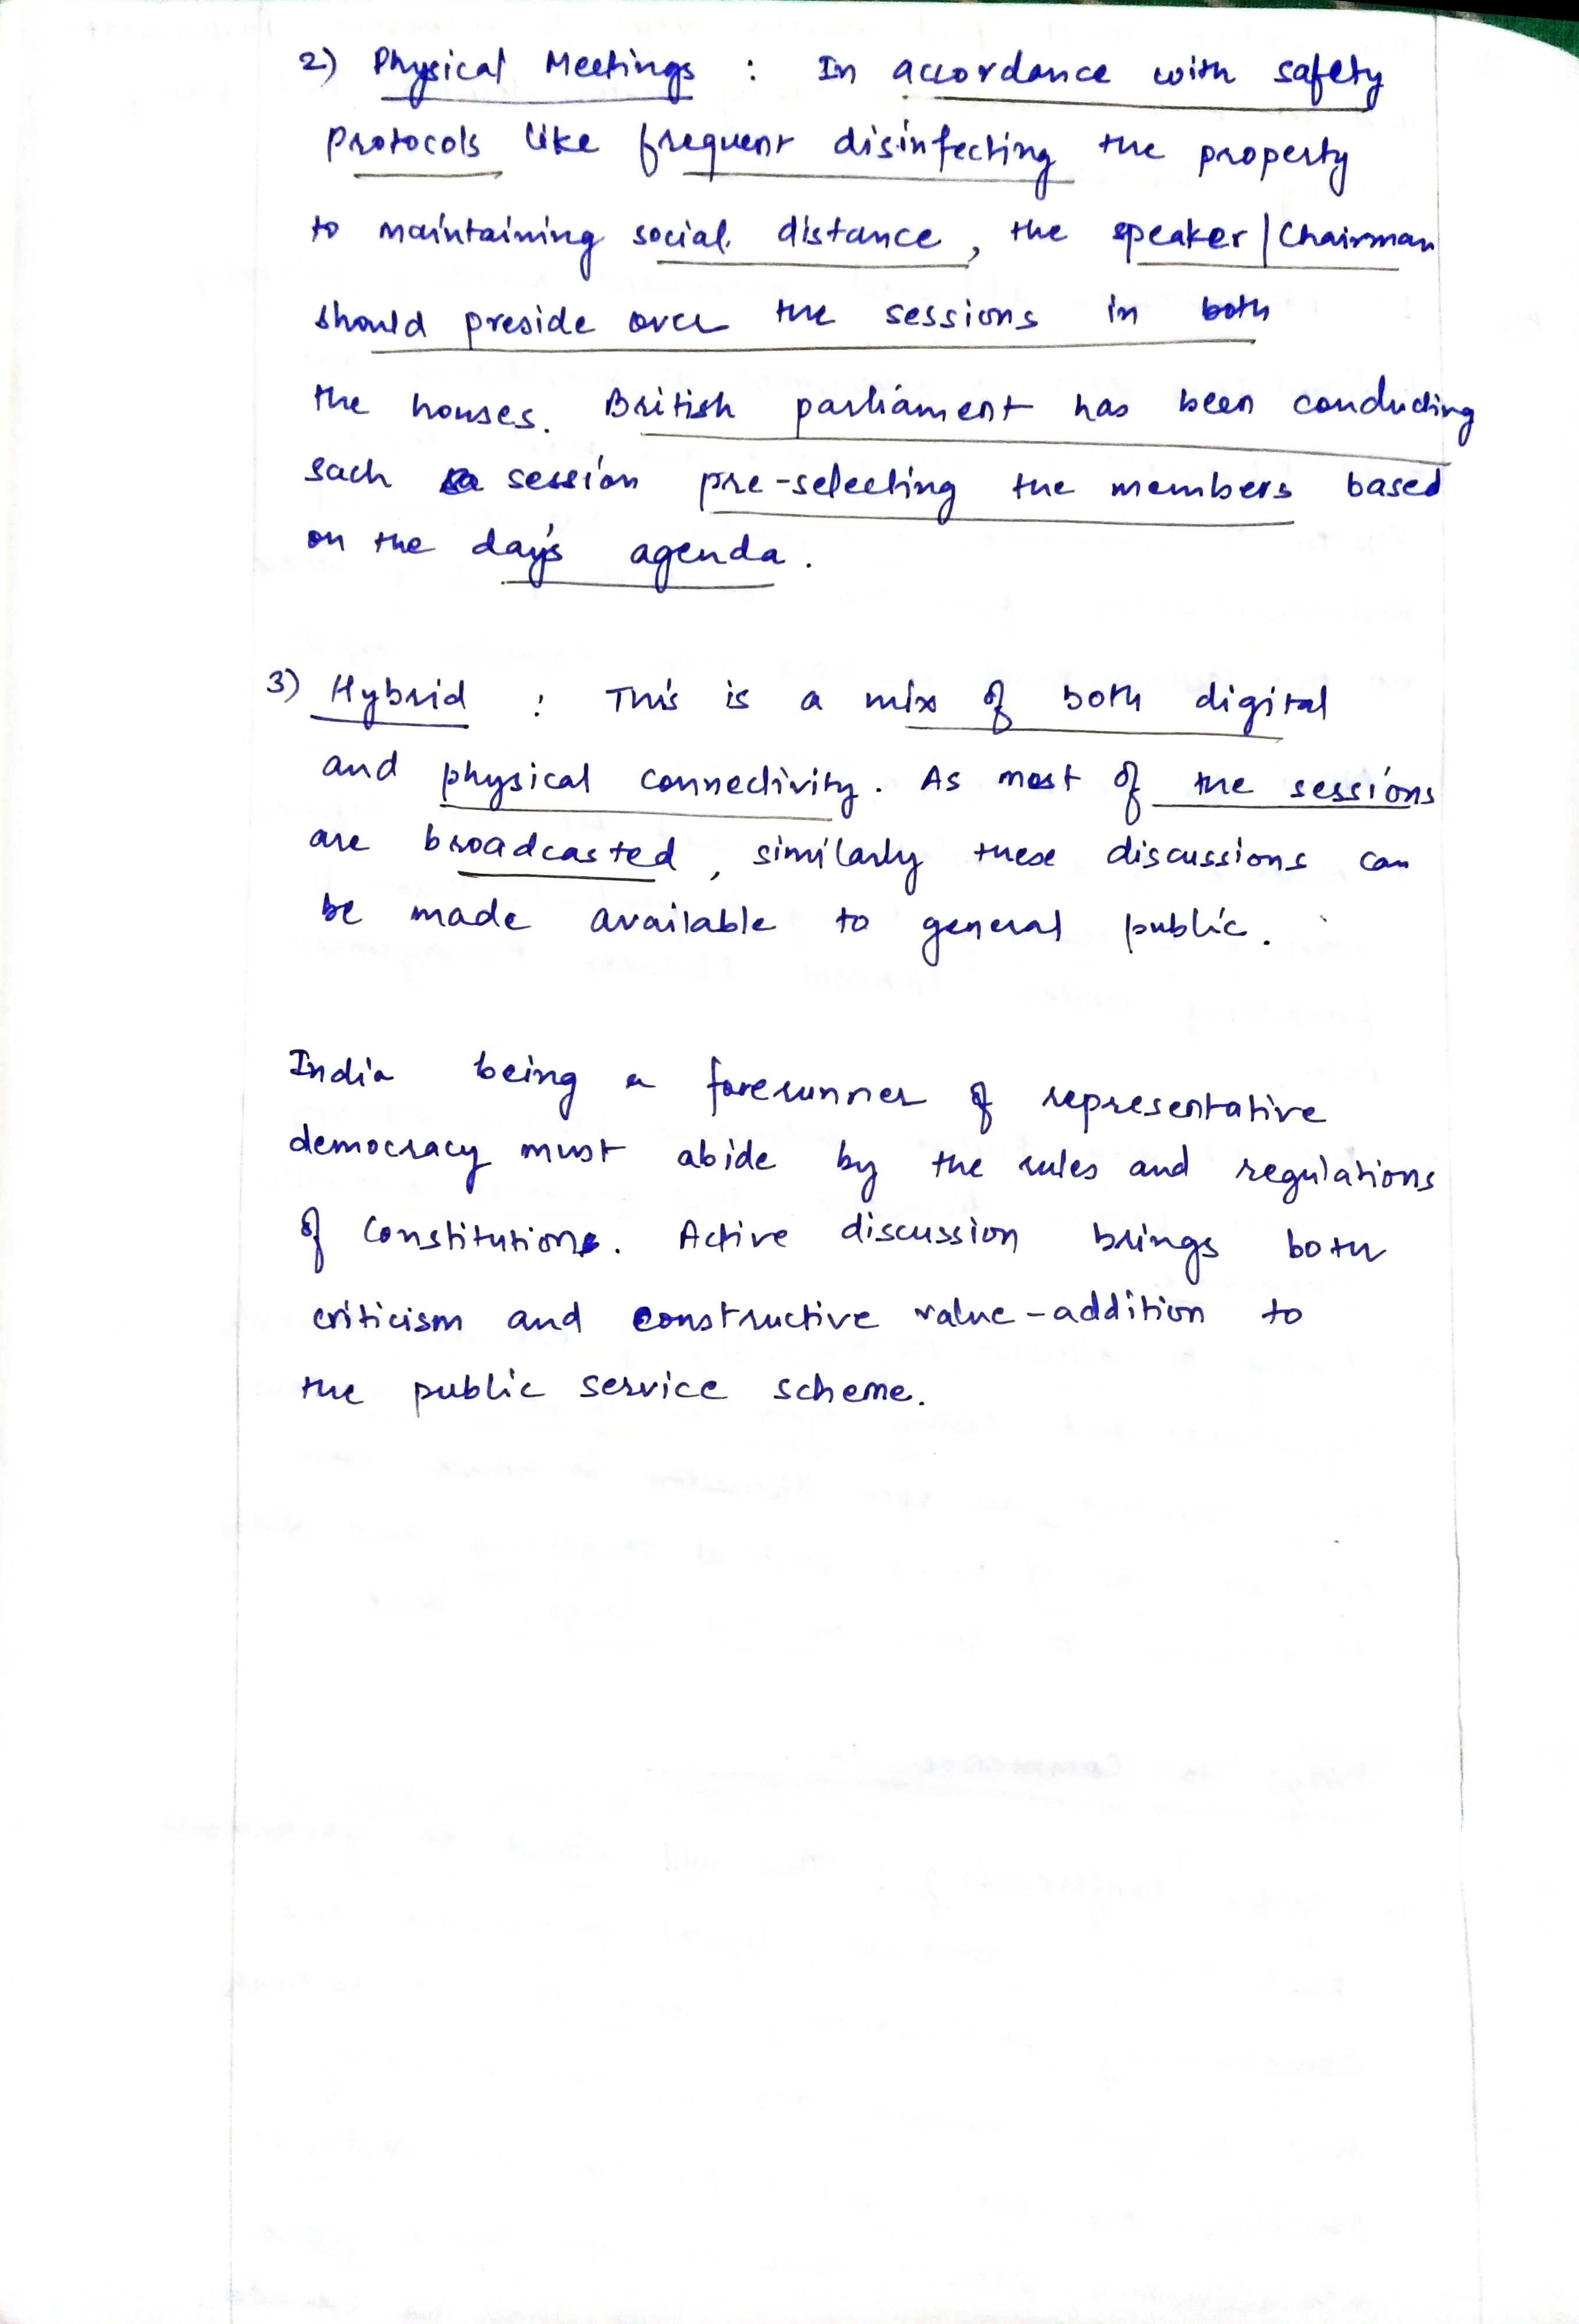 2) Physical Meetings : In accordance with safety
Protocols like frequent disinfecting the property
to maintaining social distance, the speaker/Chairman
should preside over the sessions in both
the houses. British parliament has been conducting
such session pre-selecting the members based
on the day's agenda.
3) Hybrid : This is a mix of both digital
and physical connectivity. As most of the sessions
are broadcasted, similarly these discussions can
be made available to general public.
India being a forerunner of representative
democracy must abide by the rules and regulations
of Constitution. Active discussion brings both
criticism and constructive value-addition to
the public service scheme.